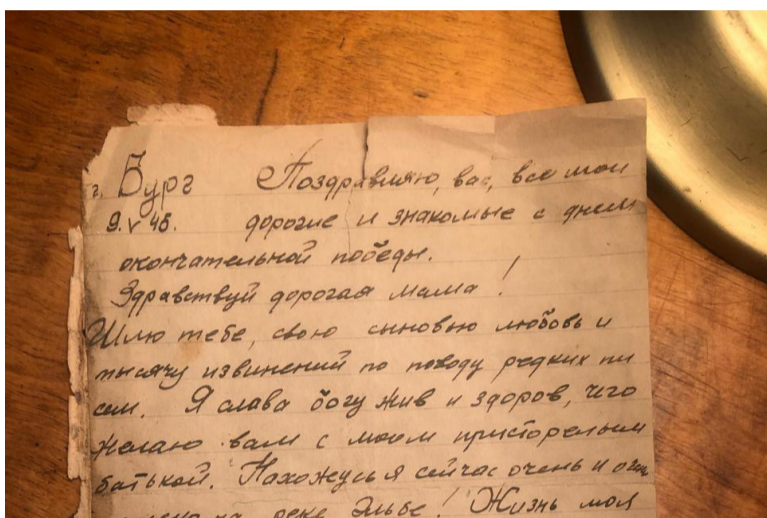 г. Бург Поздравляю, вас, все мои
9.V 45. дорогие и знакомые с днем
окончательной победы.
Здравствуй дорогая мама!
Шлю тебе, свою сыновью любовь и
тысячу извинений по поводу редких пи
сем. Я слава богу жив и здоров, чего
желаю вам с моим престорелым
батькой. Нахожусь я сейчас очень и очень
на реке Эльбе! Жизнь моя